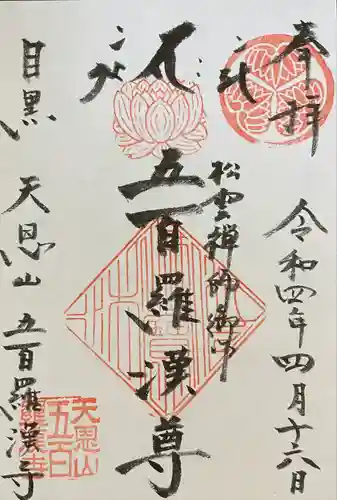 奉拝
令和四年四月十六日
松雲禅師御作
五百羅漢尊
目黒 天恩山 五百羅漢寺
天恩山
五百
羅漢寺